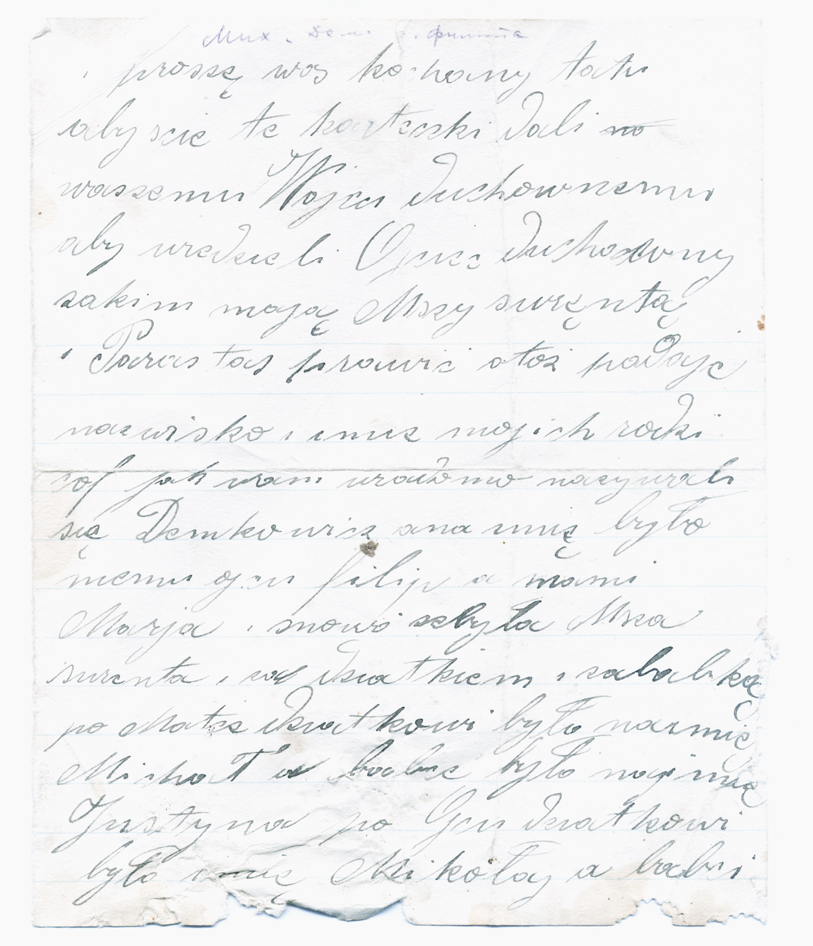 proszę was kochany tatu
abyscie te karteczki dali no
waszemu Wojcu duchownemu
aby wiedzieli Ojciec duchowny
zakim mają Mszy swięntą
i Parastas prawić otoż podaję
nazwisko i imie mojich rodzi
cof jak wam wiadomo nazywali
się Demkowicz ana imię było
memu ojcu filip a mami
Marja i znowó szbyła Msza
swienta i za dziatkiem i zababką
po Matce dziatkowi było naimię
Michał a babce było najimię
Justyna po Ojcu dziatkowi
było imię Mikołaj a babci